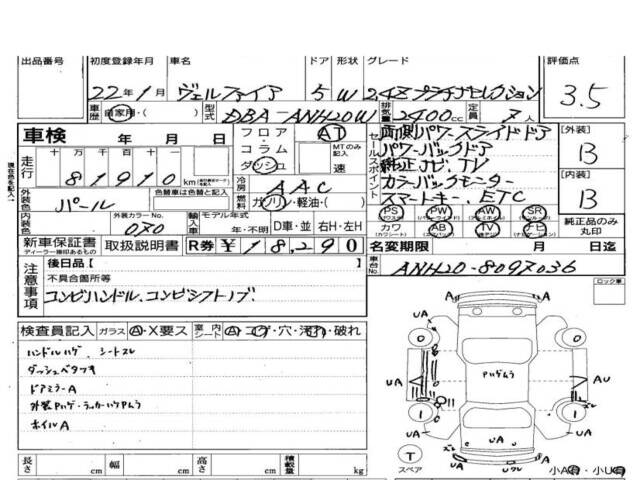 出品番号 初度登録年月 車名 ドア 形状 グレード 評価点
22年1月 ヴェルファイア 5 W 2.4Z プラチナセレクション 3.5
車歴 自家用・( ) 型式 DBA-ANH20W 排気量 2400cc 定員 7人
車検 年 月 日
フロア・コラム・ダッシュ AT MTのみ記入 速
セールスポイント
両側パワースライドドア
パワーバックドア
純正ナビ、TV
カラーバックモニター
スマートキー、ETC
[外装] B
[内装] B
現在色を記入
走行 十万千百十 81910 km
冷房 AAC
外装色 パール 色替車は色替と記入
燃料 ガソリン・軽油・( )
内装色 外装カラーNo. 070
輸入車 モデル年式 年・不明 D車・並 右H・左H
PS PW AW SR
カワ AB TV ナビ
純正品のみ丸印
新車保証書 ディーラー捺印あるもの 取扱説明書 R券 ¥18,290
名変期限 月 日迄
注意事項
後日品[ ]
不具合箇所等
コンビハンドル、コンビシフトノブ
車台No. ANH20-8097036
ロック車
検査員記入 ガラス A・X要ス 室内シート A・コゲ・穴・汚れ・破れ
ハンドルハゲ、シートスレ
ダッシュベタツキ
ドアミラーA
外装Pハゲ・ラッカーハケPムラ
ホイルA
Pハゲムラ
A A
UA A
UA A AU
UA UA
UA
スペア T
A Uワレ
小A有・小U有
長さ cm 幅 cm 高さ cm 積載量 kg